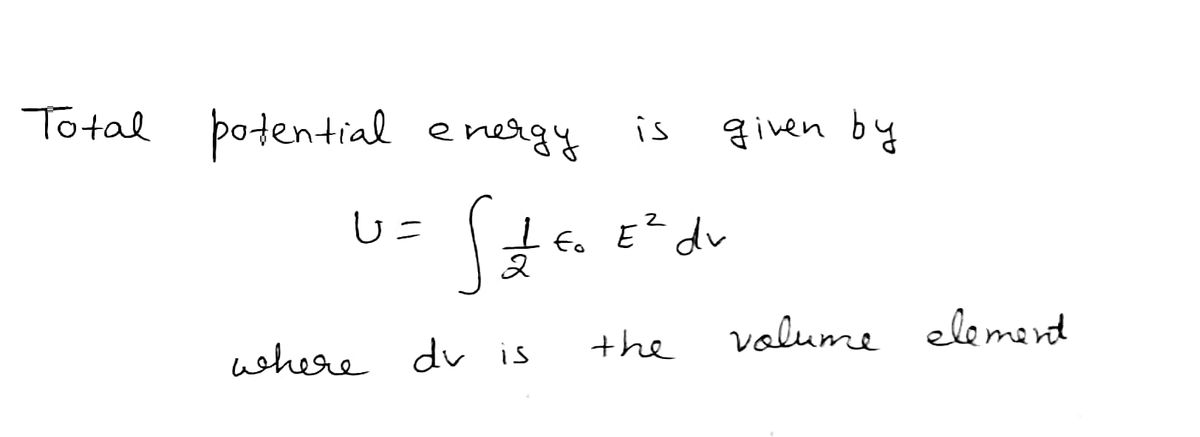 Total potential energy is given by
U = ∫ 1/2 ϵ₀ E² dv
where dv is the volume element